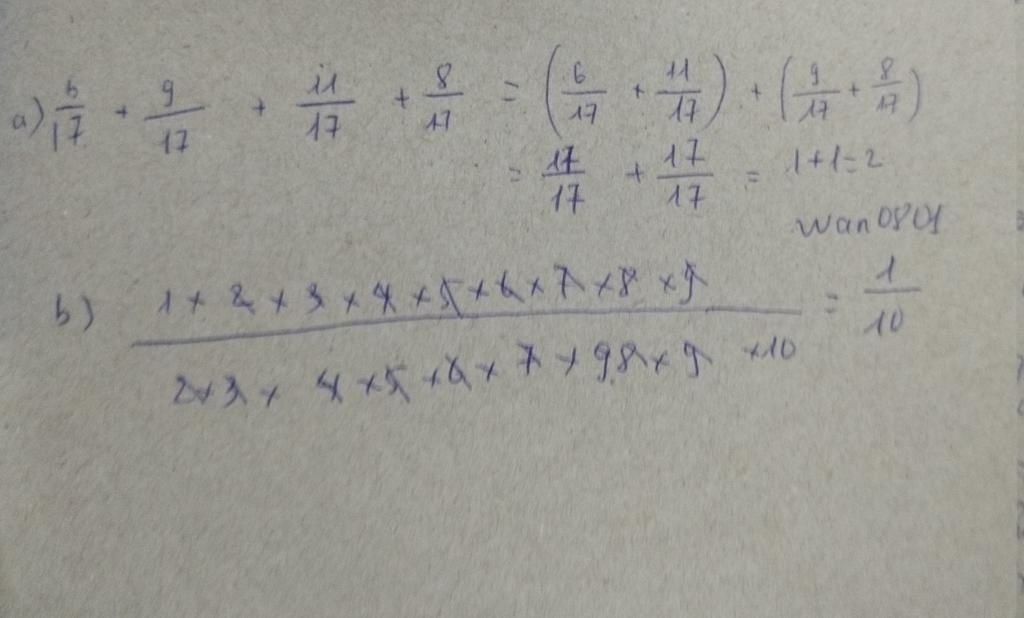 a) 6/17 + 9/17 + 11/17 + 8/17 = (6/17 + 11/17) + (9/17 + 8/17)
= 17/17 + 17/17 = 1+1=2
wan0801
b) 1 x 2 x 3 x 4 x 5 x 6 x 7 x 8 x 9 / 2 x 3 x 4 x 5 x 6 x 7 x 98 x 9 x 10 = 1/10